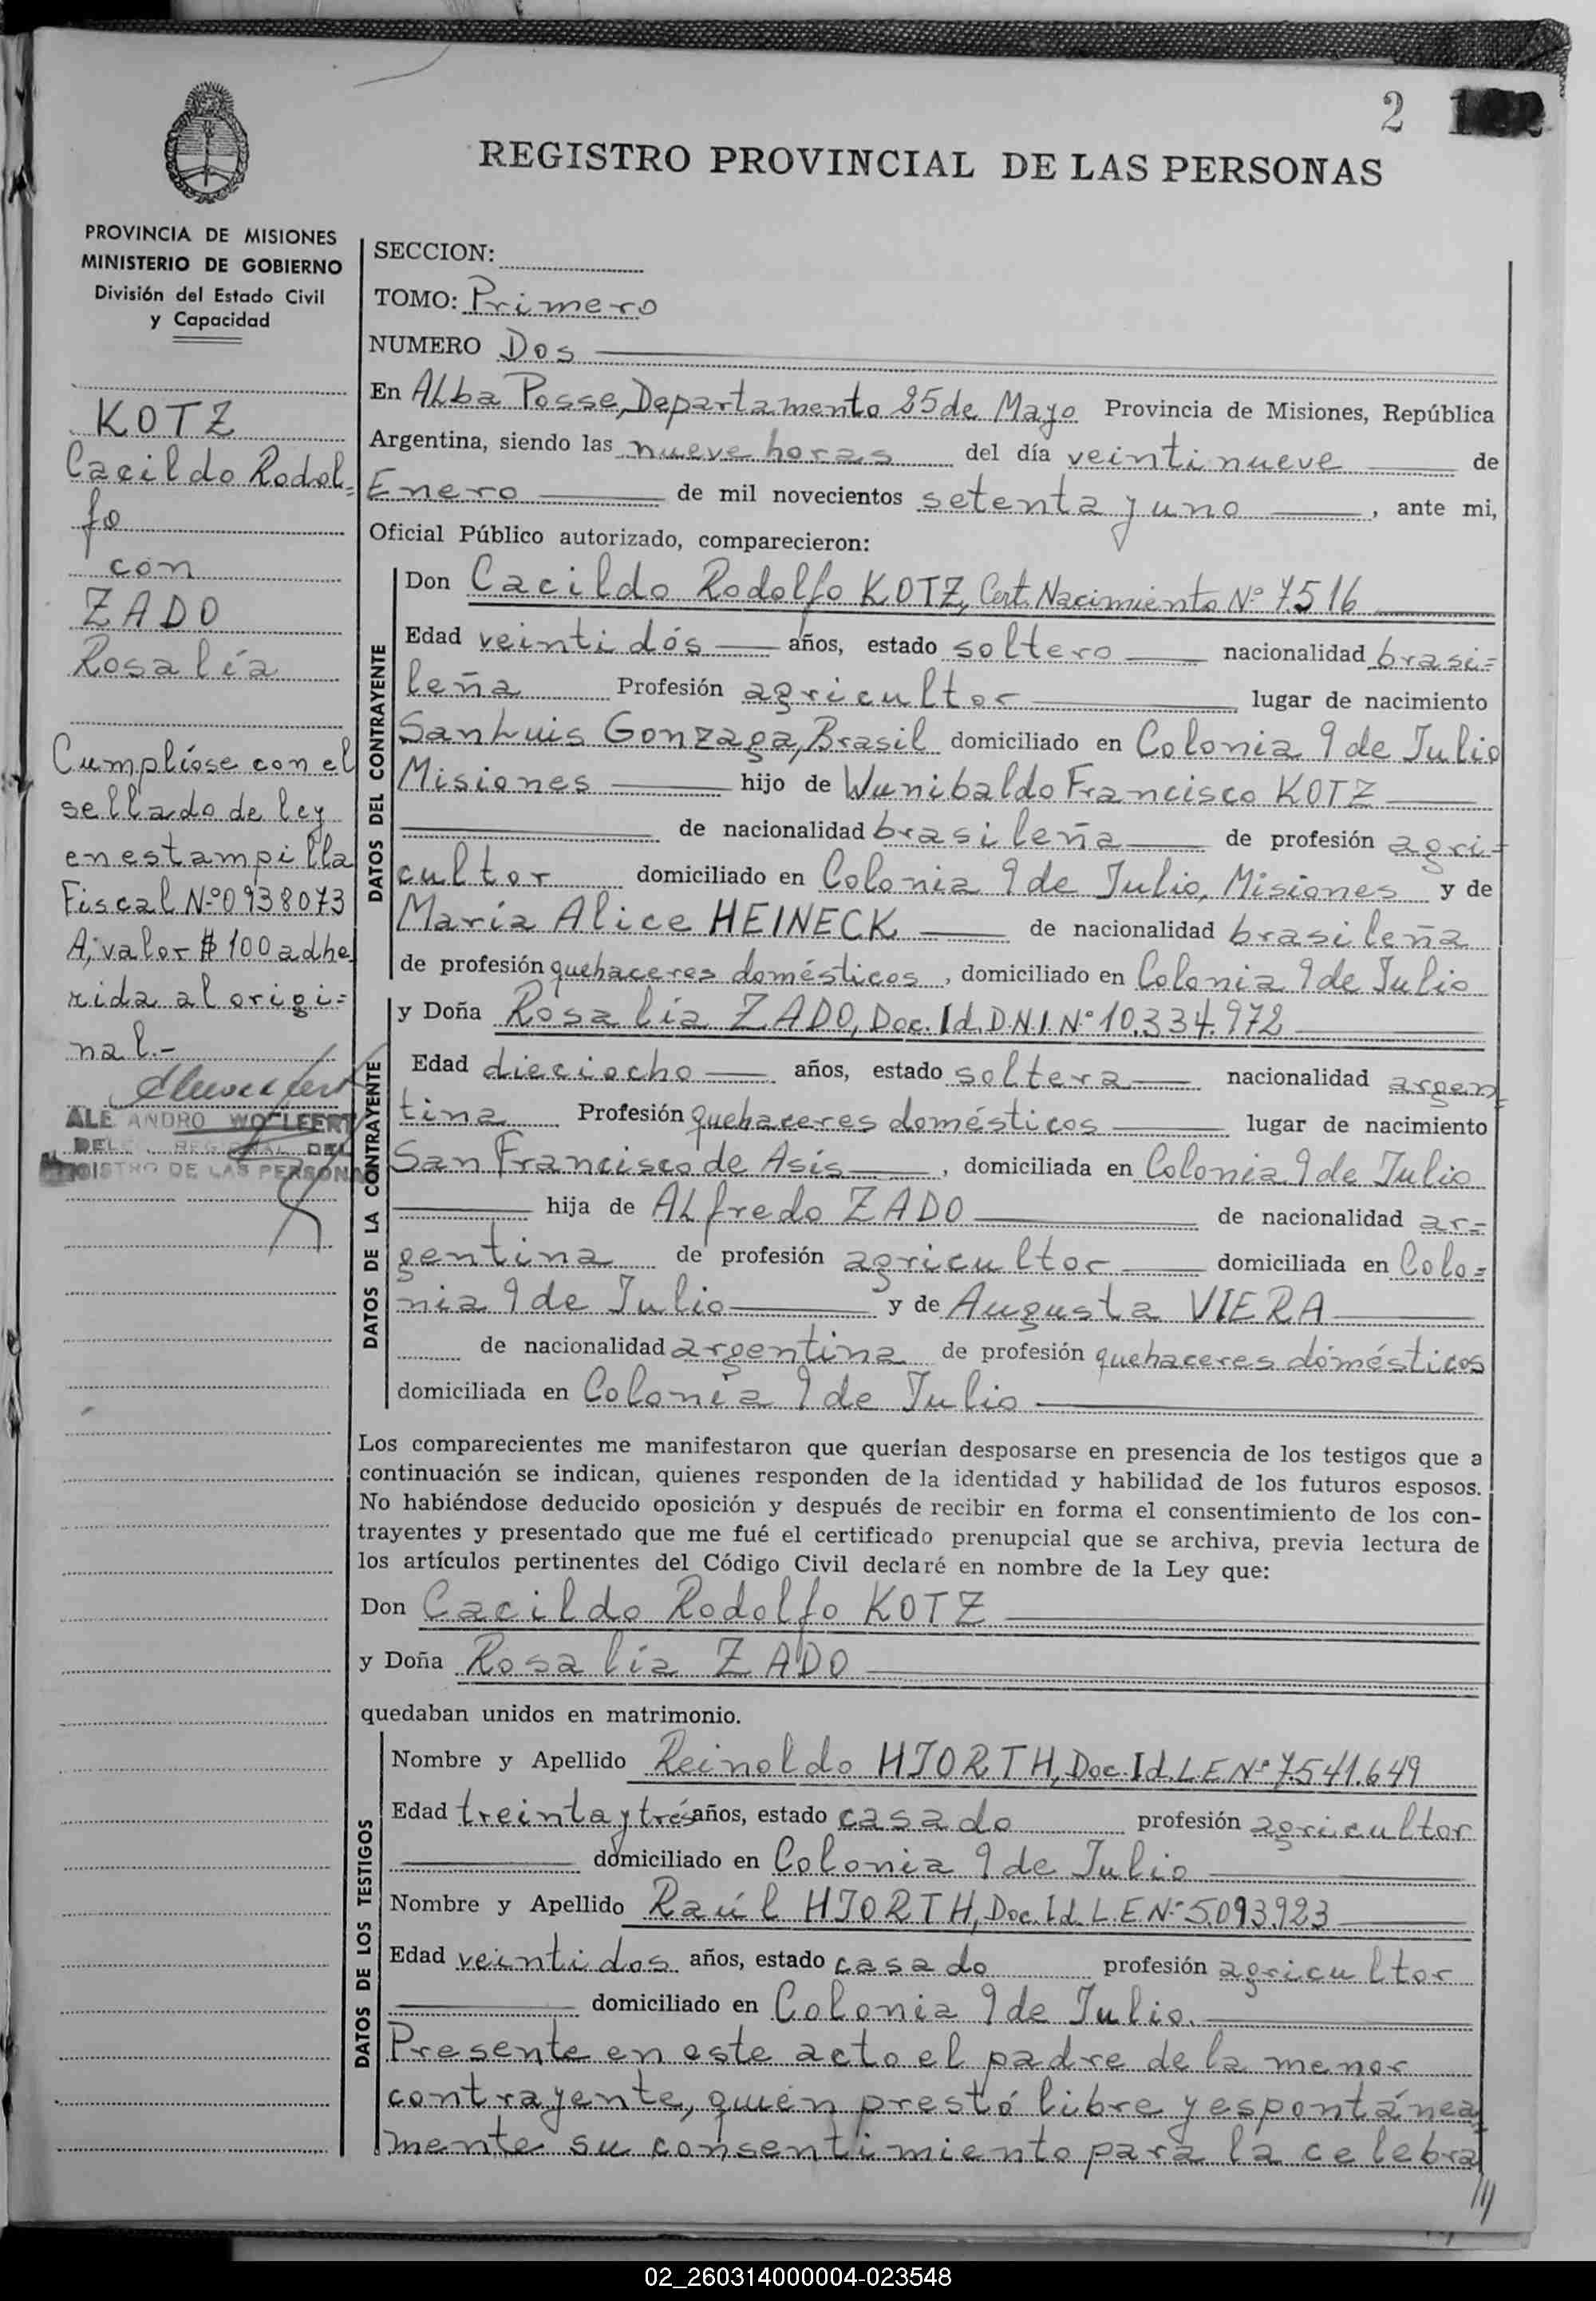 2
REGISTRO PROVINCIAL DE LAS PERSONAS
PROVINCIA DE MISIONES
MINISTERIO DE GOBIERNO
División del Estado Civil
y Capacidad
KOTZ
Cacildo Rodol=
fo
con
ZADO
Rosalía
Cumplióse con el
sellado de ley
en estampilla
Fiscal Nº 0938073
A, valor $ 100 adhe
rida al origi=
nal.-
ALE ANDRO WOLFERT
REGIONAL DEL
REGISTRO DE LAS PERSONA
SECCION:
TOMO: Primero
NUMERO Dos
En ALba Posse, Departamento 25 de Mayo Provincia de Misiones, República
Argentina, siendo las nueve horas del día veintinueve de
Enero de mil novecientos setenta y uno, ante mi,
Oficial Público autorizado, comparecieron:
DATOS DEL CONTRAYENTE
Don Cacildo Rodolfo KOTZ, Cert. Nacimiento Nº 7516
Edad veintidós años, estado soltero nacionalidad brasi=
leña Profesión agricultor lugar de nacimiento
San Luis Gonzaga, Brasil domiciliado en Colonia 9 de Julio
Misiones hijo de Wunibaldo Francisco KOTZ
de nacionalidad brasileña de profesión agri=
cultor domiciliado en Colonia 9 de Julio, Misiones y de
María Alice HEINECK de nacionalidad brasileña
de profesión quehaceres domésticos, domiciliado en Colonia 9 de Julio
DATOS DE LA CONTRAYENTE
y Doña Rosalía ZADO, Doc. Id. D.N.I Nº 10.334.972
Edad dieciocho años, estado soltera nacionalidad argen=
tina Profesión quehaceres domésticos lugar de nacimiento
San Francisco de Asís, domiciliada en Colonia 9 de Julio
hija de ALfredo ZADO de nacionalidad ar=
gentina de profesión agricultor domiciliada en Colo=
nia 9 de Julio y de Augusta VIERA
de nacionalidad argentina de profesión quehaceres domésticos
domiciliada en Colonia 9 de Julio
Los comparecientes me manifestaron que querían desposarse en presencia de los testigos que a
continuación se indican, quienes responden de la identidad y habilidad de los futuros esposos.
No habiéndose deducido oposición y después de recibir en forma el consentimiento de los con-
trayentes y presentado que me fué el certificado prenupcial que se archiva, previa lectura de
los artículos pertinentes del Código Civil declaré en nombre de la Ley que:
Don Cacildo Rodolfo KOTZ
y Doña Rosalía ZADO
quedaban unidos en matrimonio.
DATOS DE LOS TESTIGOS
Nombre y Apellido Reinoldo HJORTH, Doc. Id. L E Nº 7.541.649
Edad treinta y trés años, estado casado profesión agricultor
domiciliado en Colonia 9 de Julio
Nombre y Apellido Raúl HJORTH, Doc. Id. L. E Nº 5.093.923
Edad veintidos años, estado casado profesión agricultor
domiciliado en Colonia 9 de Julio.
Presente en este acto el padre de la menor
contrayente, quién prestó libre y espontánea=
mente su consentimiento para la celebra
////
02_260314000004-023548